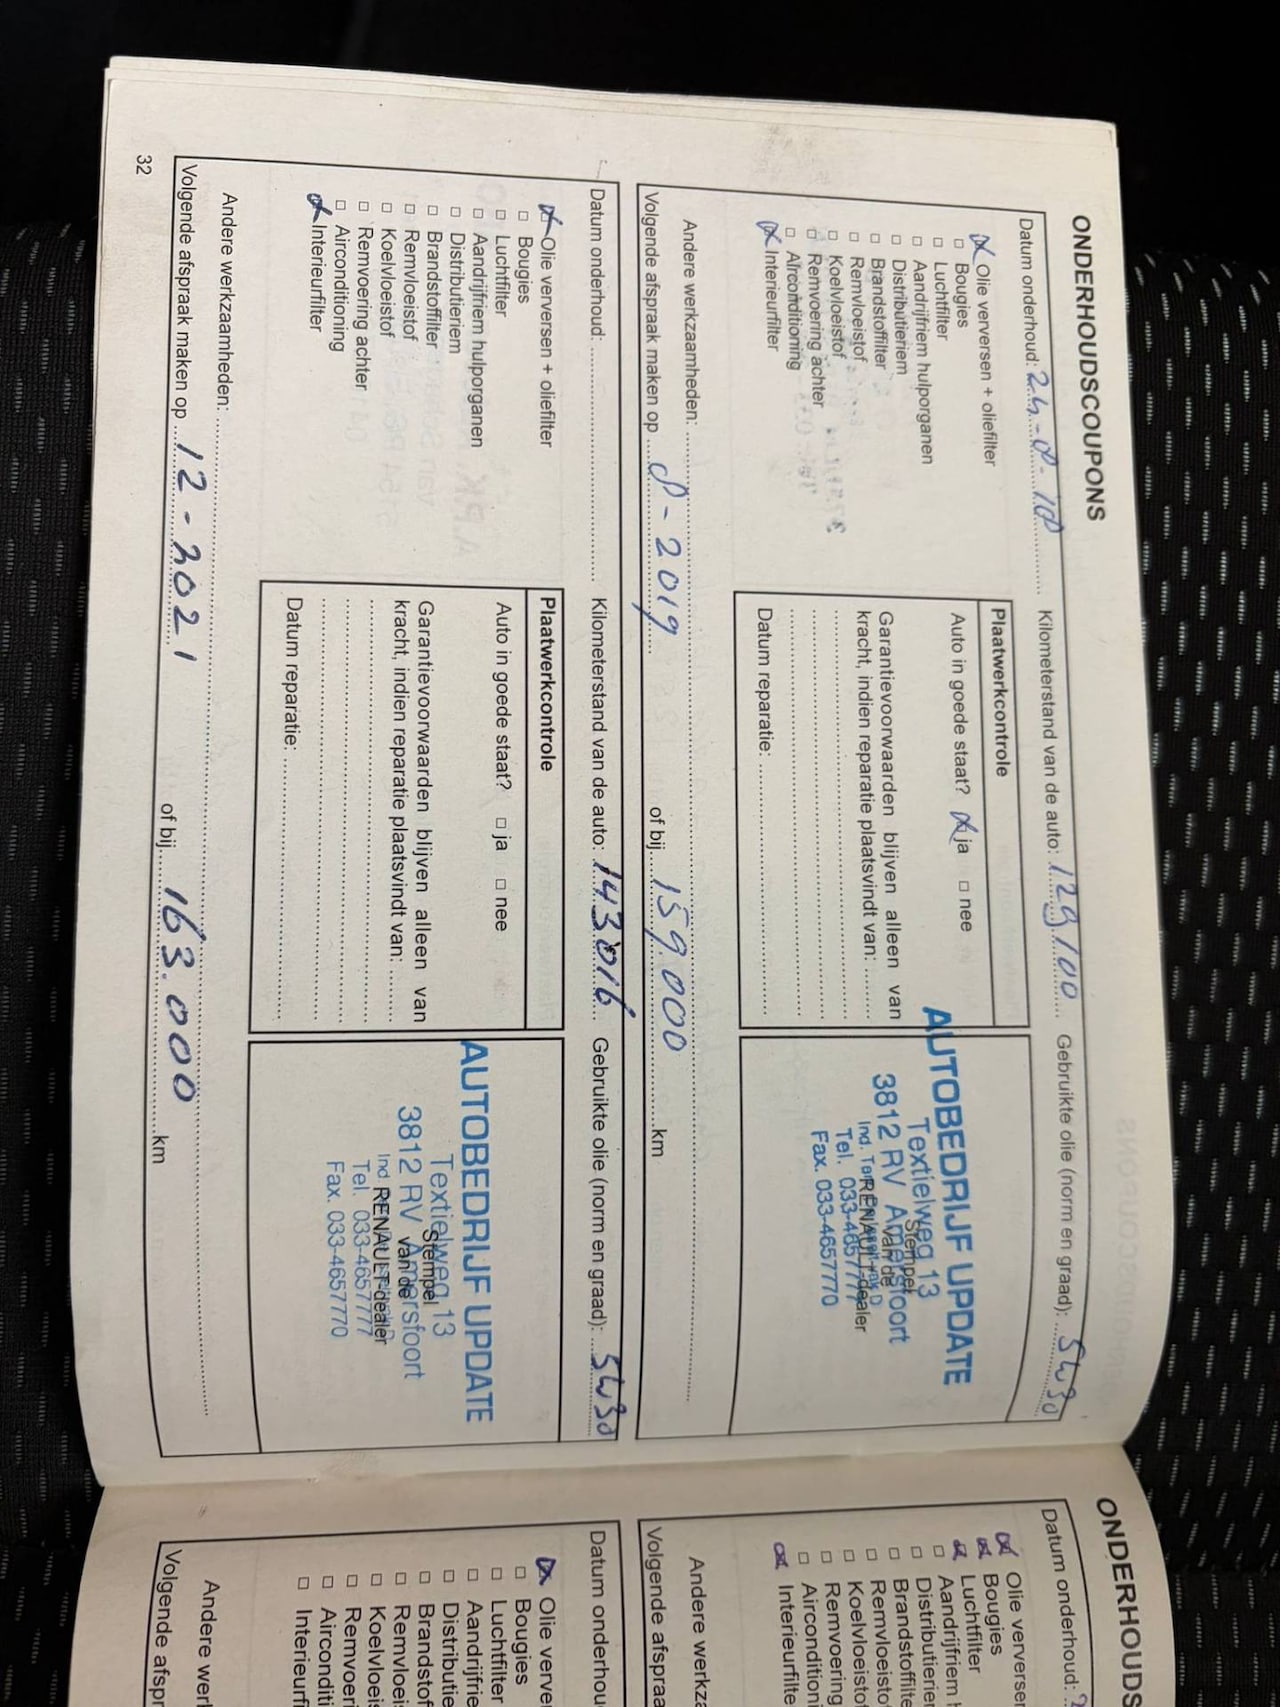 ONDERHOUDSCOUPONS
Datum onderhoud: 24-8-18 Kilometerstand van de auto: 129100 Gebruikte olie (norm en graad): 5W30
Olie verversen + oliefilter
□ Bougies
□ Luchtfilter
□ Aandrijfriem hulporganen
□ Distributieriem
□ Brandstoffilter
□ Remvloeistof
□ Koelvloeistof
□ Remvoering achter
□ Airconditioning
Interieurfilter
Plaatwerkcontrole
Auto in goede staat? ja □ nee
Garantievoorwaarden blijven alleen van
kracht, indien reparatie plaatsvindt van:
Datum reparatie:
AUTOBEDRIJF UPDATE
Textielweg 13
3812 RV Amersfoort
Tel. 033-4657777
Fax. 033-4657770
Stempel
van de
RENAULT-dealer
Andere werkzaamheden:
Volgende afspraak maken op 8-2019 of bij 159000 km
Datum onderhoud: Kilometerstand van de auto: 143016 Gebruikte olie (norm en graad): 5W30
Olie verversen + oliefilter
□ Bougies
□ Luchtfilter
□ Aandrijfriem hulporganen
□ Distributieriem
□ Brandstoffilter
□ Remvloeistof
□ Koelvloeistof
□ Remvoering achter
□ Airconditioning
Interieurfilter
Plaatwerkcontrole
Auto in goede staat? □ ja □ nee
Garantievoorwaarden blijven alleen van
kracht, indien reparatie plaatsvindt van:
Datum reparatie:
AUTOBEDRIJF UPDATE
Textielweg 13
3812 RV Amersfoort
Tel. 033-4657777
Fax. 033-4657770
Stempel
van de
RENAULT-dealer
Andere werkzaamheden:
Volgende afspraak maken op 12-2021 of bij 163.000 km
32
ONDERHOUDS
Datum onderhoud:
Olie verversen
Bougies
Luchtfilter
□ Aandrijfriem
□ Distributierier
□ Brandstoffilte
□ Remvloeistof
□ Koelvloeistof
□ Remvoering
□ Airconditioni
Interieurfilte
Andere werkza
Volgende afspraa
Datum onderhou
Olie verve
□ Bougies
□ Luchtfilter
□ Aandrijfrie
□ Distributie
□ Brandstof
□ Remvloei
□ Koelvloeis
□ Remvoeri
□ Airconditi
□ Interieurfi
Andere werl
Volgende afspr